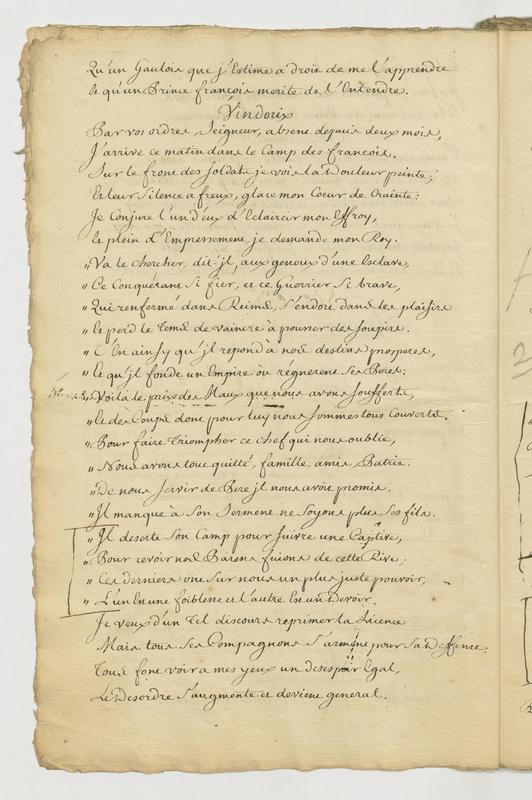 Qu'un Gaulois que j'Estime a droit de me l'apprendre
Et qu'un Prince françois merite de l'Entendre.
Vindorix
Par vos ordres, Seigneur, absent depuis deux mois,
J'arrive ce matin dans le Camp des francois.
Sur le front des soldats je vois la Douleur peinte,
Et leur Silence affreux, glace mon Coeur de Crainte:
Je Conjure l'un d'eux d'Eclaircir mon Effroy,
Et plein d'Empressement je demande mon Roy.
„ Va le chercher, dit-jl, aux genoux d'une Esclave,
„ Ce Conquerant Si fier, et ce Guerrier Si brave,
„ Qui renfermé dans Reims, s'endort dans les plaisirs
„ Et perd le tems de vaincre à pousser des soupirs.
„ C'Est ainsy qu'jl repond a nos destins prosperes,
„ Et qu'jl fonde un Empire où régnerent Ses Peres:
„ Voila le prix des Maux que nous avons soufferts,
„ Et des Coups dont pour luy nous sommes tous Couverts.
„ Pour faire Triompher ce chef qui nous oublie,
„ Nous avons tout quitté, famille, amis Patrie.
„ De nous servir de Pere jl nous avoit promis.
„ Jl manque à Son Serment ne Soyons plus Ses fils.
„ Jl deserte Son Camp pour suivre une Captive,
„ Pour revoir nos Parens fuions de cette Rive.
„ Ces derniers ont Sur nous un plus juste pouvoir,
„ L'un Est une foiblesse et l'autre Est un Devoir.
Je veux d'un Tel discours reprimer la Licence
Mais tous Ses Compagnons S'arment pour Sa Deffense.
Tous font voir a mes yeux un desespoir Egal,
Le Desordre S'augmente et devient general.